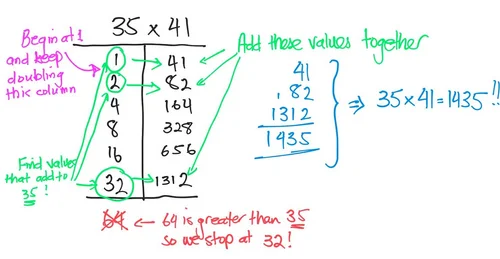 35 x 41
Begin at 1
and keep
doubling
this column
1 41
2 82
4 164
8 328
16 656
32 1312
64 ← 64 is greater than 35
so we stop at 32!
Find values
that add to
35!
Add these values together
41
82
1312
1435
⇒ 35 x 41 = 1435!!